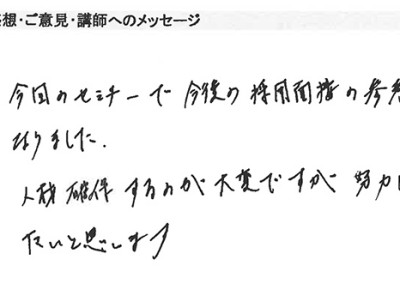 感想・ご意見・講師へのメッセージ
今回のセミナーで今後の採用面接の参考
なりました.
人材確保するのが大変ですが努力し
たいと思います